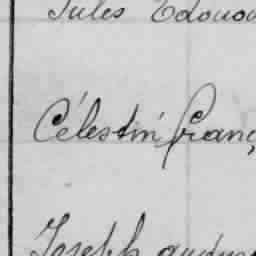 Jules Edouou
Célestin Franç
Joseph